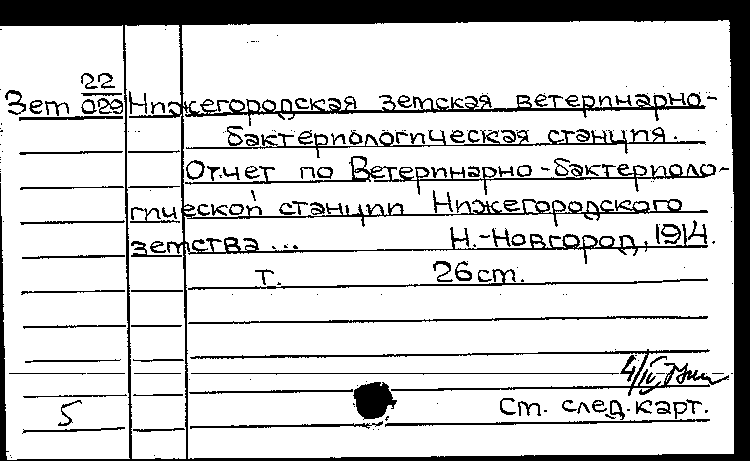 22
Зет 029 Нижегородская земская ветеринарно-
бактериологическая станция.
Отчет по Ветеринарно-бактериоло-
гической станции Нижегородского
земства... Н.-Новгород, 1914.
т. 26 ст.
4/IV
5 Ст. след. карт.